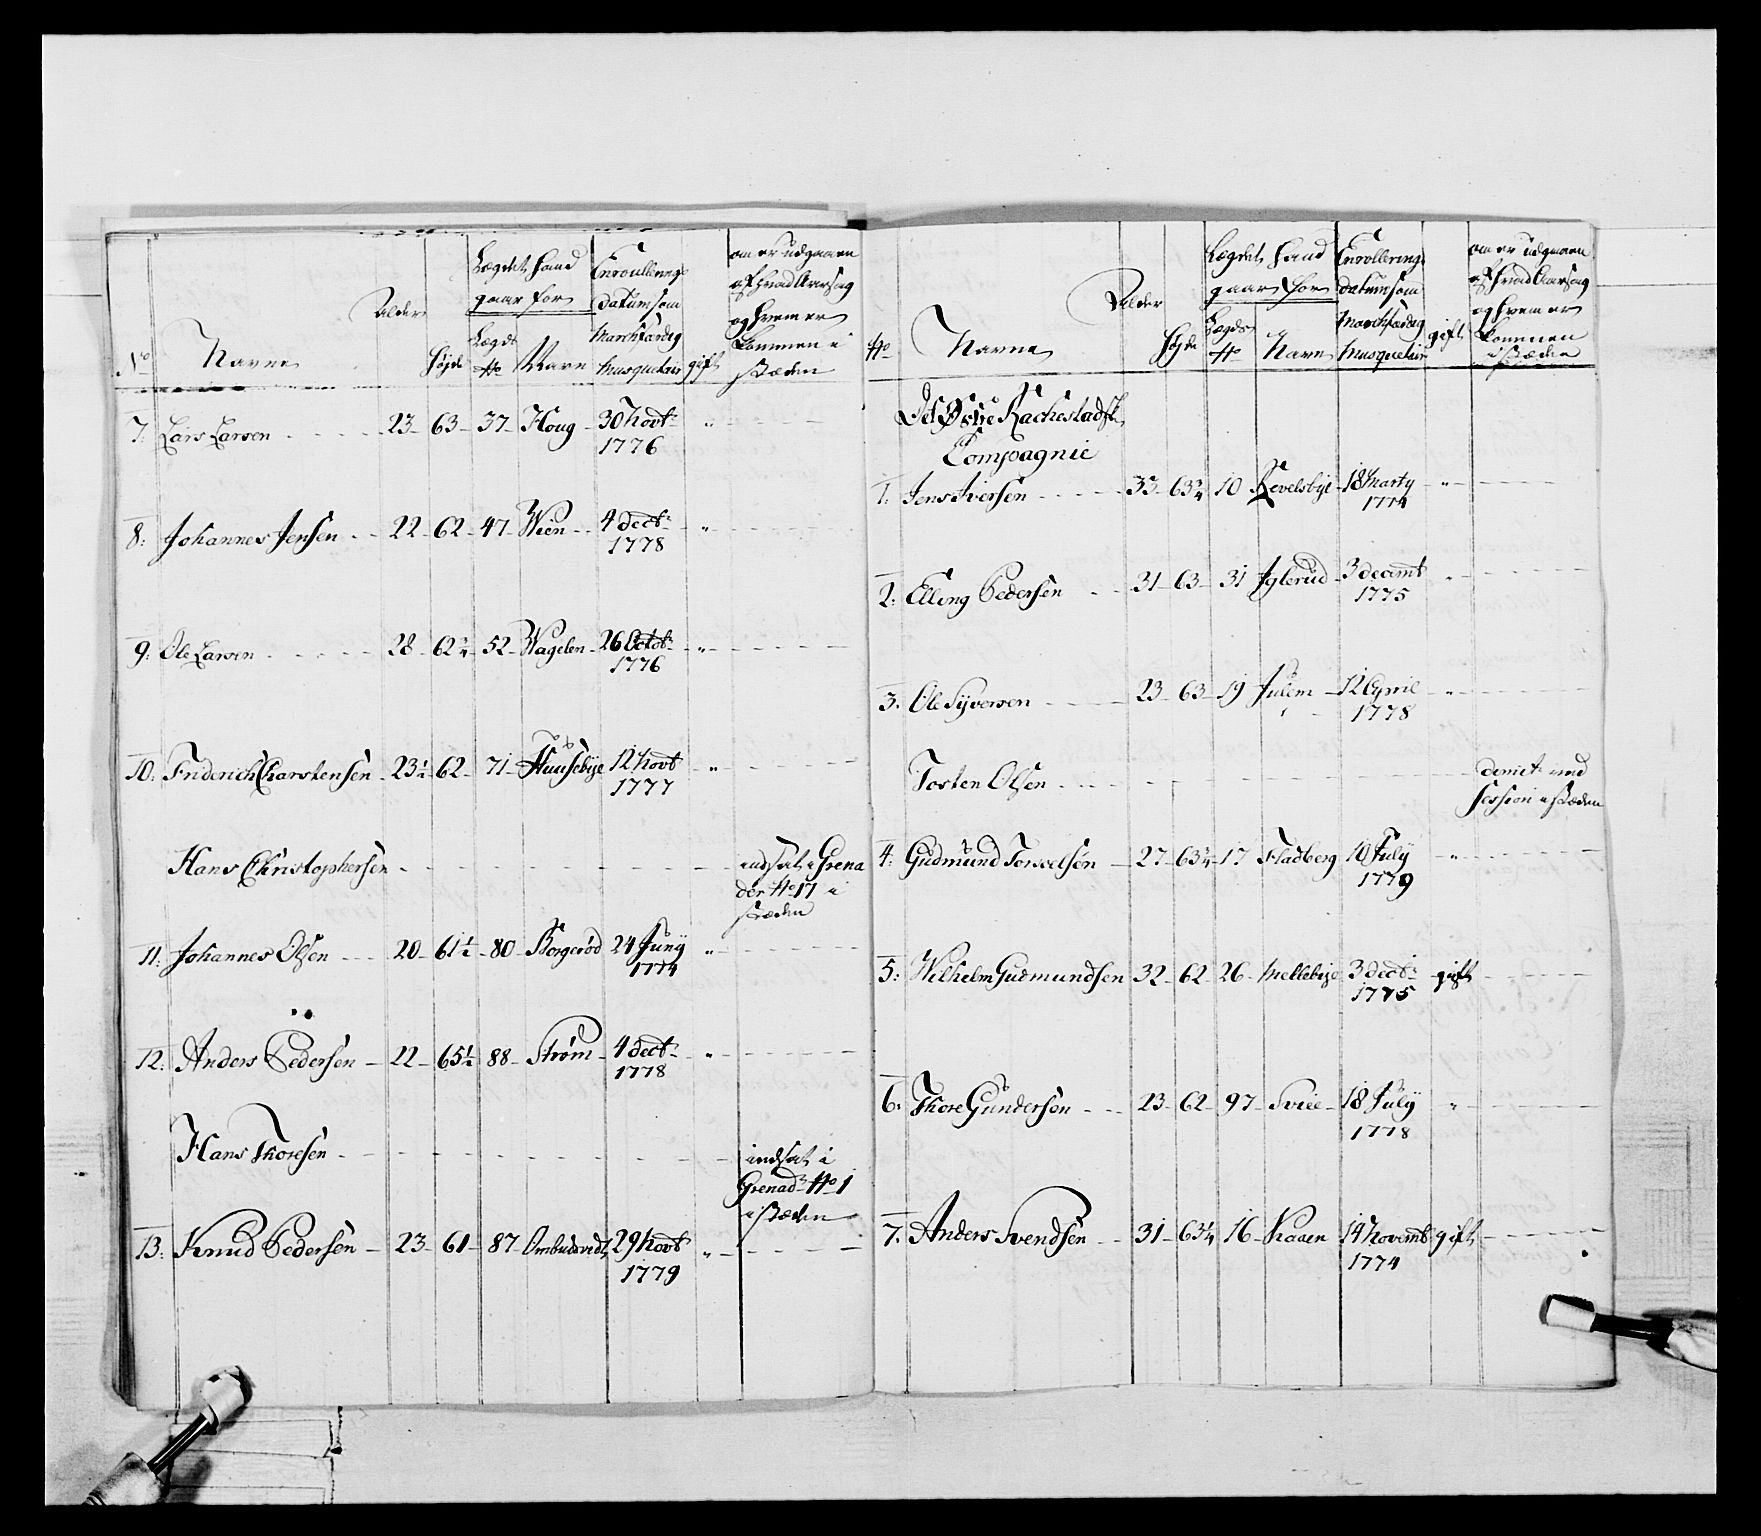 No Navne Alder Højde Lægdet hand gaar for Lægds No Navn Enroullerings datum som Marchfærdig Musquetair gift om er udgaaen af hvad Aarsag og hvem er kommen i stæden
7: Lars Larsen 23 63 37 Houg 30 Novbr 1776 "
8: Johannes Jensen 22 62 47 Wien 4 decbr 1778 "
9: Ole Larsen 28 62 3/4 52 Wagelen 26 Octobr 1776 "
10: Friderich Charstensen 23 1/2 62 71 Huusebye 12 Novbr 1777 "
Hans Christophersen indsat i Grena
der No 17 i
stæden
11: Johannes Olsen 20 61 1/2 80 Borgerød 24 Juny 1774 "
12: Anders Pedersen 22 65 1/2 88 Strøm 4 decbr 1778 "
Hans Thoresen indsat i
Grenad: No 1
i stæden
13: Knud Pedersen 23 61 87 Ombudsvedt 29 Novbr 1779 "
No Navne Alder Højde Lægdet hand gaar for Lægds No Navn Enrollerings datum som Marchfærdig Musquetair gift om er udgaaen af hvad Aarsag og hvem er kommen i stæden
Det Østre Rackestadske
Compagnie
1: Jens Iversen 33 63 3/4 10 Revelsbye 18 Marty 1774 "
2: Elling Pedersen 31 63 31 Iglerud 3 decembr 1775 "
3. Ole Syversen 23 63 19 Julem 12 April 1778 "
Torsten Olsen demit: ved
Session i stæden
4: Gudmund Torvelsen 27 63 3/4 17 Fladberg 10 July 1779 "
5: Wilhelm Gudmundsen 32 62 26 Mellebye 3 decbr 1775 gift
6. Thore Gundersen 23 62 97 Sviie 18 July 1778 "
7. Anders Svendsen 31 63 1/4 16 Kaaen 14 Novembr 1774 gift